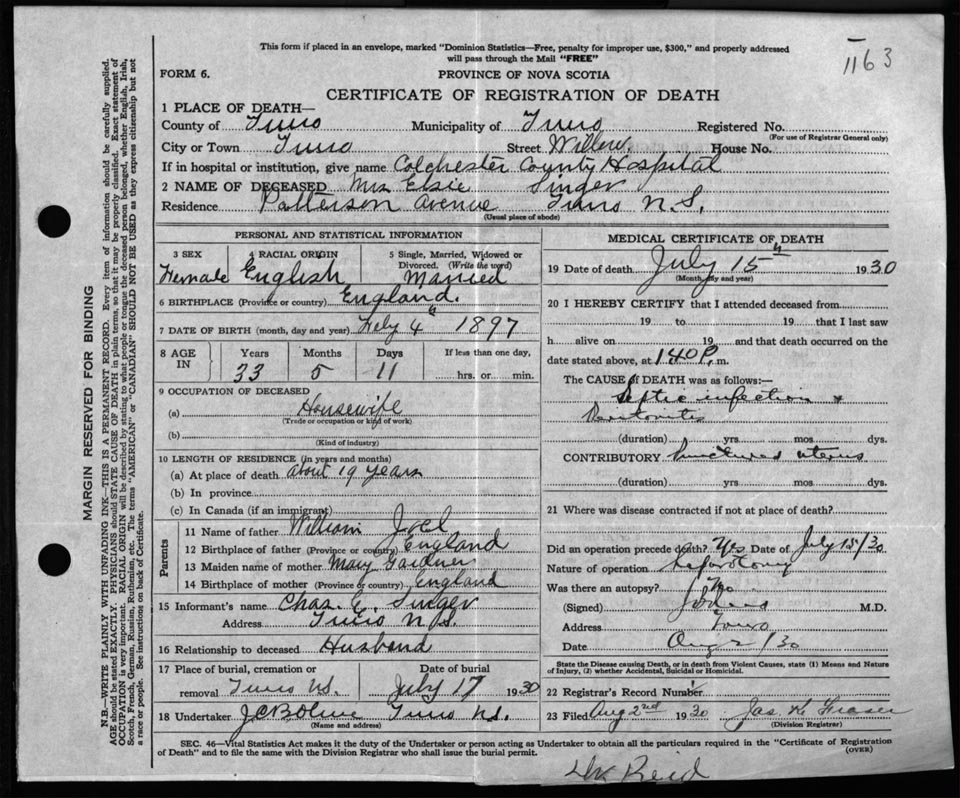 This form if placed in an envelope, marked "Dominion Statistics—Free, penalty for improper use, $300," and properly addressed
will pass through the Mail "FREE"
1163
FORM 6.
PROVINCE OF NOVA SCOTIA
CERTIFICATE OF REGISTRATION OF DEATH
1 PLACE OF DEATH—
County of Truro Municipality of Truro Registered No.
(For use of Registrar General only)
City or Town Truro Street Willow House No.
If in hospital or institution, give name Colchester County Hospital
2 NAME OF DECEASED Mrs Elsie Singer
Residence Patterson Avenue Truro N.S.
(Usual place of abode)
PERSONAL AND STATISTICAL INFORMATION
3 SEX 4 RACIAL ORIGIN 5 Single, Married, Widowed or Divorced. (Write the word)
Female English Married
6 BIRTHPLACE (Province or country) England.
7 DATE OF BIRTH (month, day and year) Feby 4th 1897
8 AGE IN Years Months Days If less than one day,
33 5 11 hrs. or min.
9 OCCUPATION OF DECEASED
(a) Housewife
(Trade or occupation or kind of work)
(b)
(Kind of industry)
10 LENGTH OF RESIDENCE (in years and months)
(a) At place of death About 19 years
(b) In province
(c) In Canada (if an immigrant)
Parents
11 Name of father William Joel
12 Birthplace of father (Province or country) England
13 Maiden name of mother Mary Gardner
14 Birthplace of mother (Province or country) England
15 Informant's name Chas. E. Singer
Address Truro N.S.
16 Relationship to deceased Husband
17 Place of burial, cremation or Date of burial
removal Truro N.S. July 17 1930
18 Undertaker Truro N.S.
(Name and address)
MEDICAL CERTIFICATE OF DEATH
19 Date of death July 15th 1930
(Month, day and year)
20 I HEREBY CERTIFY that I attended deceased from
19 to 19 that I last saw
h alive on 19 and that death occurred on the
date stated above, at 140 P. m.
The CAUSE of DEATH was as follows:—
Septic infection &
Peritonitis
(duration) yrs. mos. dys.
CONTRIBUTORY Punctured uterus
(duration) yrs. mos. dys.
21 Where was disease contracted if not at place of death?
Did an operation precede death? Yes Date of July 15/30
Nature of operation Laparotomy
Was there an autopsy? No
(Signed) M.D.
Address Truro
Date Aug 2/30
State the Disease causing Death, or in death from Violent Causes, state (1) Means and Nature
of Injury, (2) whether Accidental, Suicidal or Homicidal.
22 Registrar's Record Number
23 Filed Aug 2nd 1930 Jas. K. Fraser
(Division Registrar)
SEC. 46—Vital Statistics Act makes it the duty of the Undertaker or person acting as Undertaker to obtain all the particulars required in the "Certificate of Registration
of Death" and to file the same with the Division Registrar who shall issue the burial permit.
(OVER)
Dr Reid
MARGIN RESERVED FOR BINDING
N.B.—WRITE PLAINLY WITH UNFADING INK—THIS IS A PERMANENT RECORD. Every item of information should be carefully supplied.
AGE should be stated EXACTLY. PHYSICIANS should STATE CAUSE OF DEATH in plain terms, so that it may be properly classified. Exact statement of
OCCUPATION is very important. RACIAL ORIGIN will be described by stating to what people or tongue the deceased person belonged, whether English, Irish,
Scotch, French, German, Russian, Ruthenian, etc. The terms "AMERICAN" or "CANADIAN" SHOULD NOT BE USED as they express citizenship but not
a race or people. See instructions on back of Certificate.